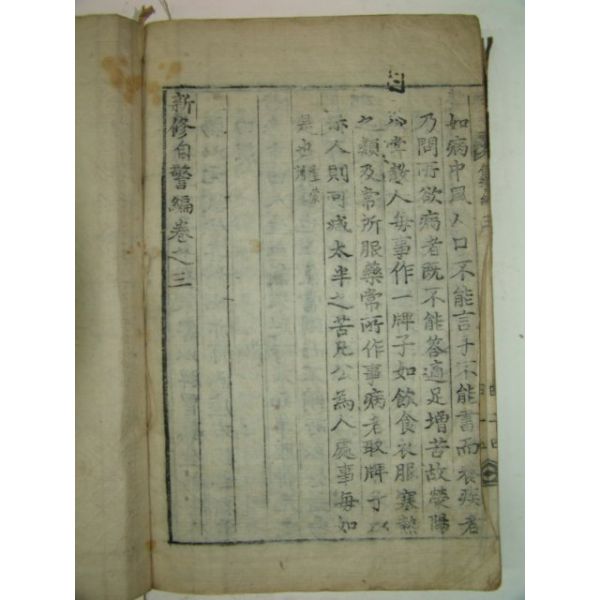 如病中風人口不能言手不能書而養疾者
乃問所欲病者既不能答適足增苦故滎陽
公嘗教人每事作一牌子如飲食衣服寒熱
之類及常所服藥常所作事病者取牌子以
示人則可減太半之苦凡公爲人處事每如
是也
新修自警編卷之三